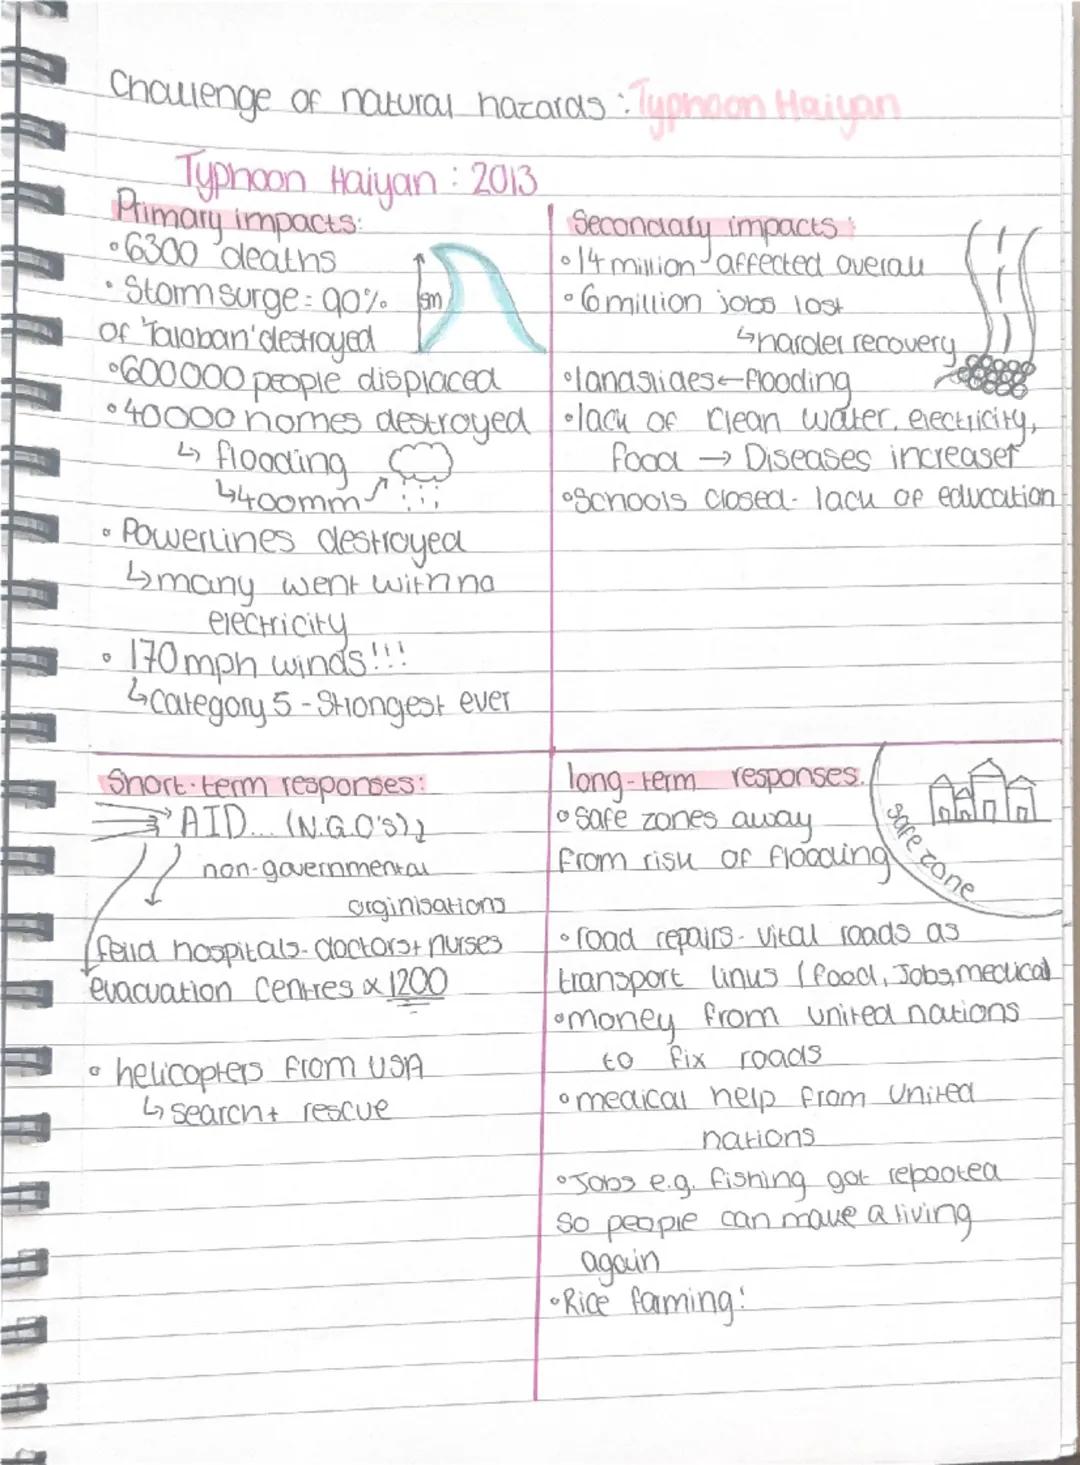 Challenge of natural hazards : Typhoon Haiyan
Typhoon Haiyan : 2013
Primary impacts:
• 6300 deaths
• Storm surge = 90%
of 'Taloban' destroyed
5m
• 600000 people displaced
• 40000 homes destroyed
↳ flooding
↳ 400mm
• Powerlines destroyed
↳ many went with no
electricity
• 170mph winds!!!
↳ Category 5 - Strongest ever
Secondary impacts :
• 14 million affected overall
• 6 million jobs lost
↳ harder recovery
• landslides ← flooding
• lack of clean water, electricity,
food → Diseases increase↑
• Schools closed - lack of education
Short-term responses:
AID... (N.G.O's)
non-governmental
orginisations
feild hospitals - doctors + nurses
evacuation Centres x 1200
• helicopters from USA
↳ search + rescue
long-term responses.
• Safe zones away
from risk of flooding
safe zone
• road repairs - vital roads as
transport links (food, Jobs, medical
• money from united nations
to fix roads
• medical help from United
nations
• Jobs e.g. fishing got rebooted
so people can make a living
again
• Rice farming!